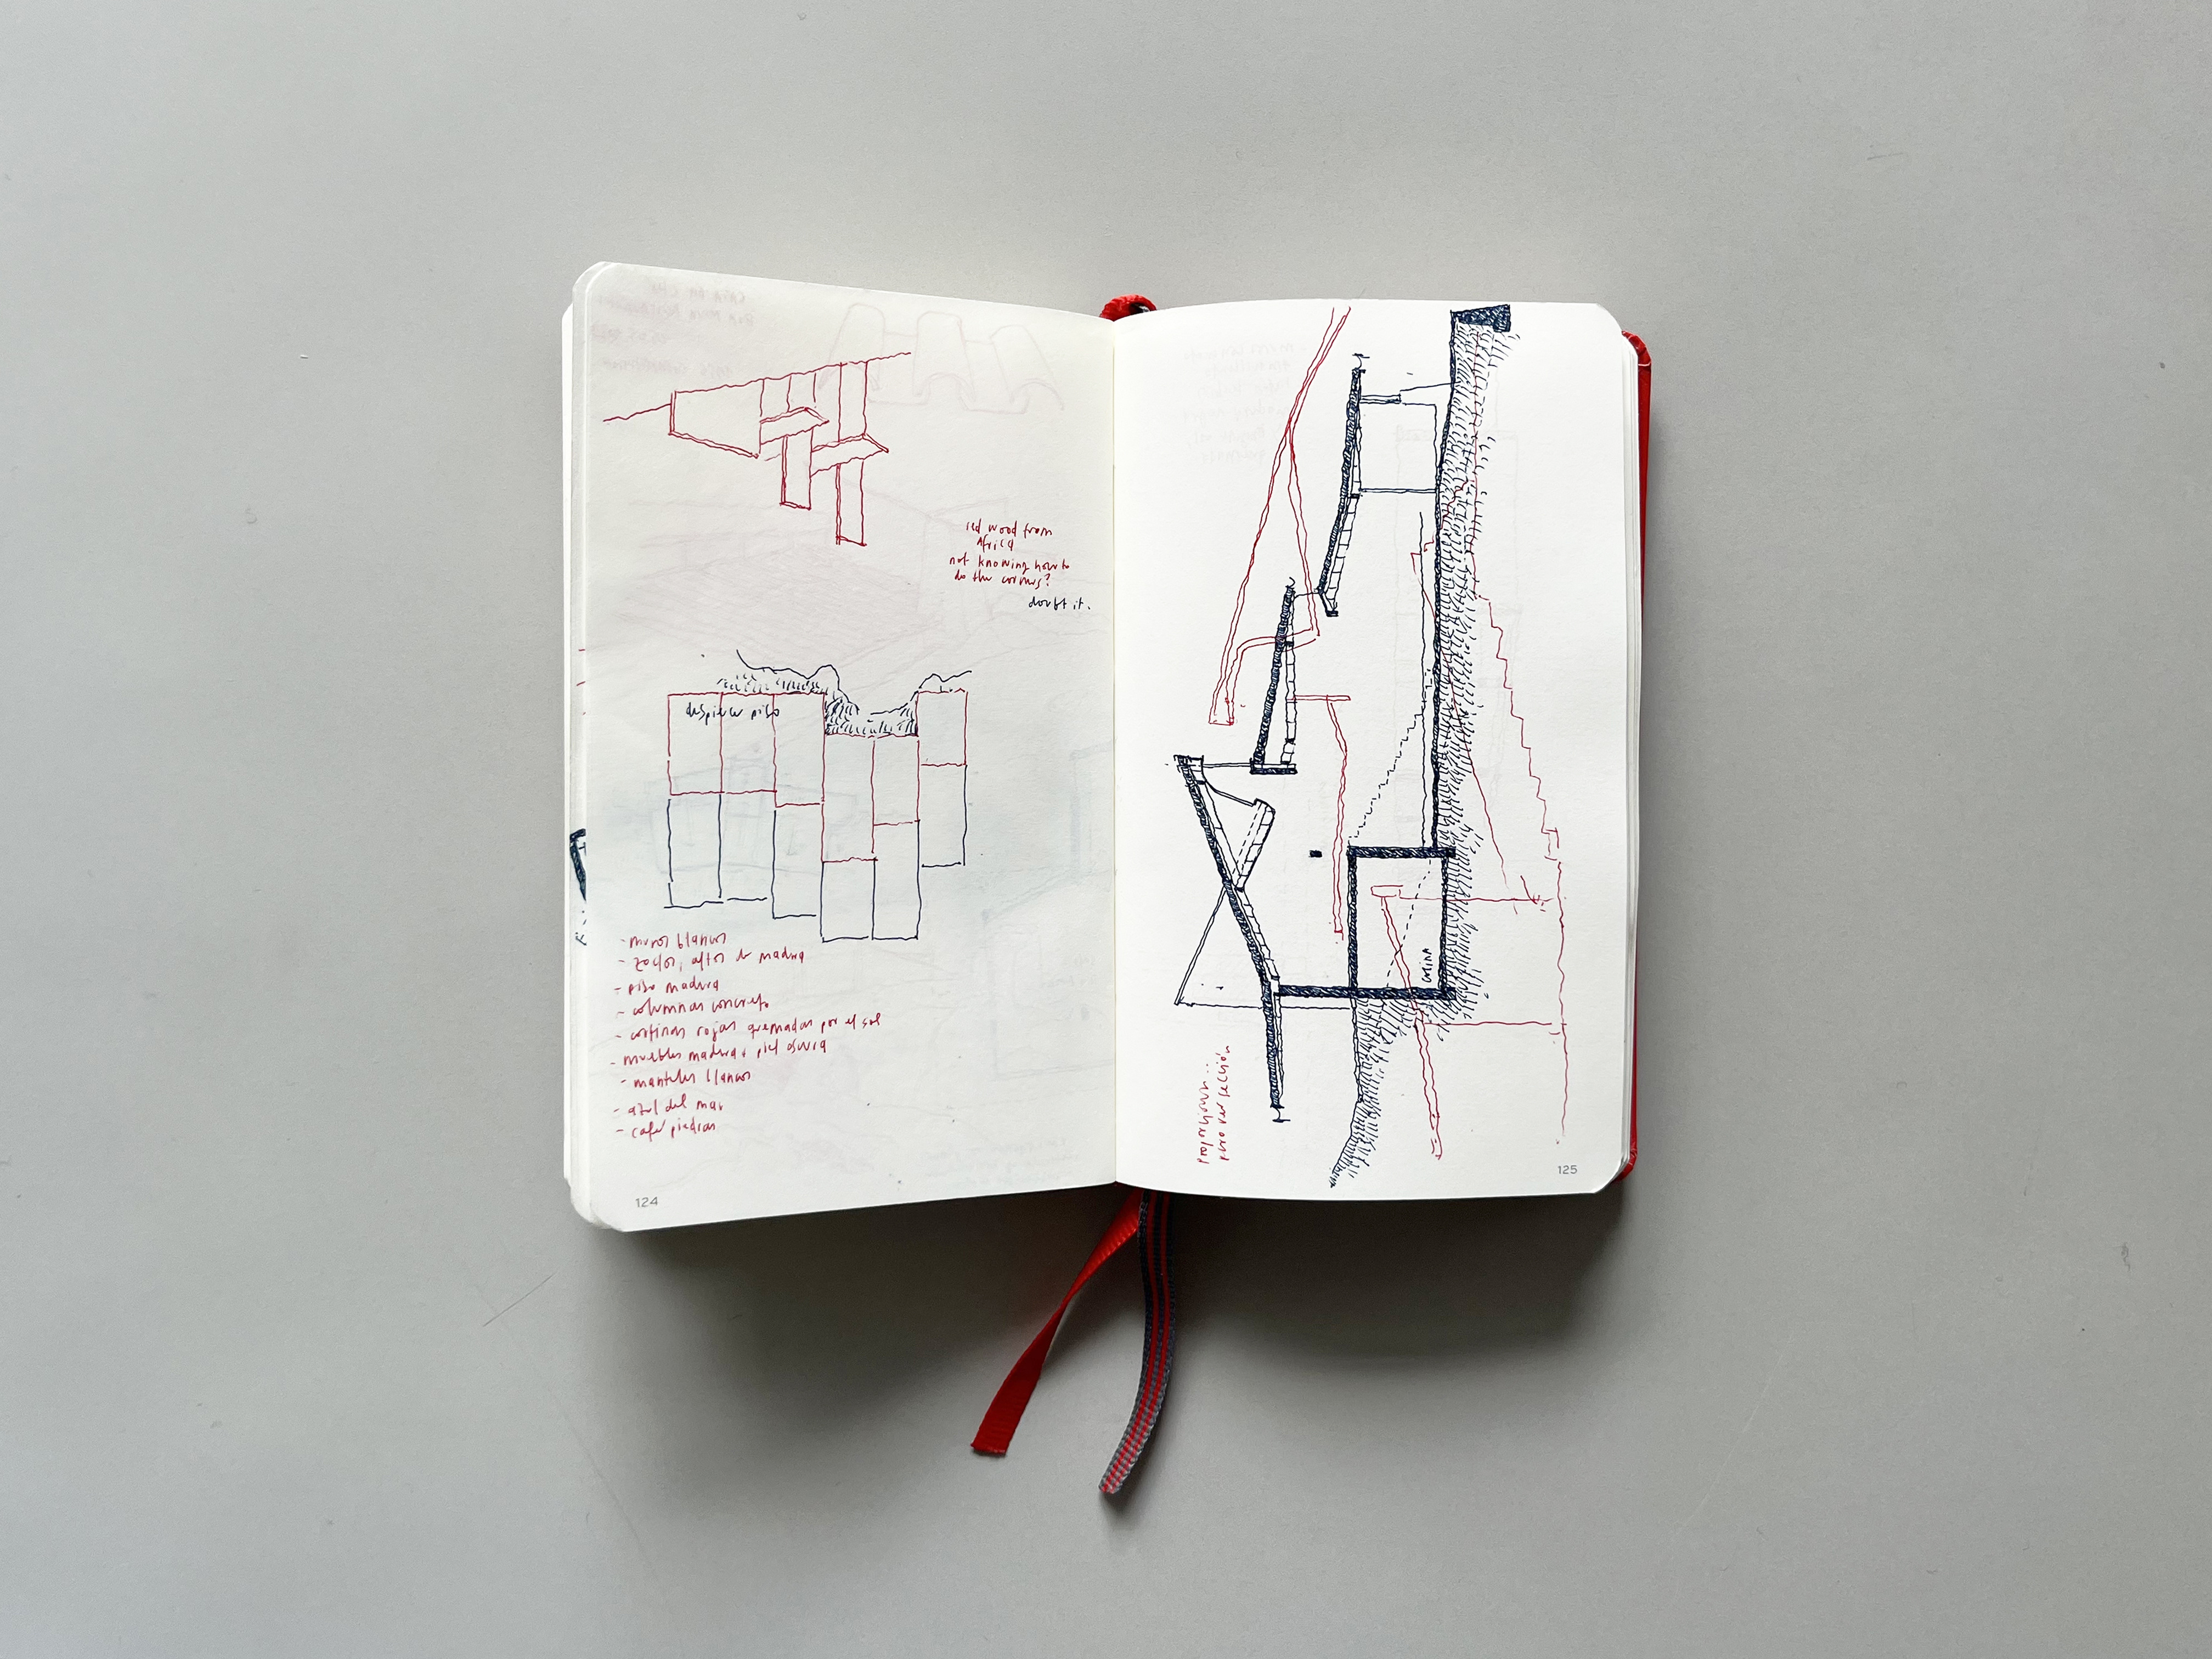 red wood from
Africa
not knowing how to
do the corners?
doubt it.
despiece piso
- muros blancos
- zoclos altos de madera
- piso madera
- columnas concreto
- cortinas rojas quemadas por el sol
- muebles madera y piel oscura
- manteles blancos
- azul del mar
- cafe piedras
124
proporciones..
pero ver sección
125